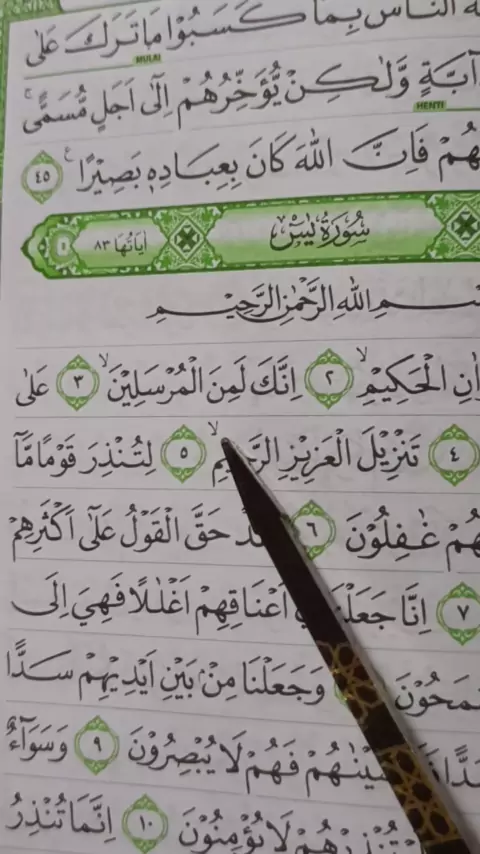 النَّاسَ بِمَا كَسَبُوْا مَا تَرَكَ عَلٰى
MULAI
دَآبَّةٍ وَّلٰكِنْ يُّؤَخِّرُهُمْ اِلٰٓى اَجَلٍ مُّسَمًّىۚ
HENTI
فَاِنَّ اللّٰهَ كَانَ بِعِبَادِهٖ بَصِيْرًا ࣖ ٤٥
سُوْرَةُ يٰسۤ
اٰيَاتُهَا ٨٣
بِسْمِ اللّٰهِ الرَّحْمٰنِ الرَّحِيْمِ
الْحَكِيْمِۙ ٢ اِنَّكَ لَمِنَ الْمُرْسَلِيْنَۙ ٣ عَلٰى
٤ تَنْزِيْلَ الْعَزِيْزِ ۙ ٥ لِتُنْذِرَ قَوْمًا مَّآ
غٰفِلُوْنَ ٦ حَقَّ الْقَوْلُ عَلٰٓى اَكْثَرِهِمْ
٧ اِنَّا اَعْنَاقِهِمْ اَغْلٰلًا فَهِيَ اِلَى
وَجَعَلْنَا مِنْۢ بَيْنِ اَيْدِيْهِمْ سَدًّا
فَهُمْ لَا يُبْصِرُوْنَ ٩ وَسَوَاۤءٌ
لَا يُؤْمِنُوْنَ ١٠ اِنَّمَا تُنْذِرُ